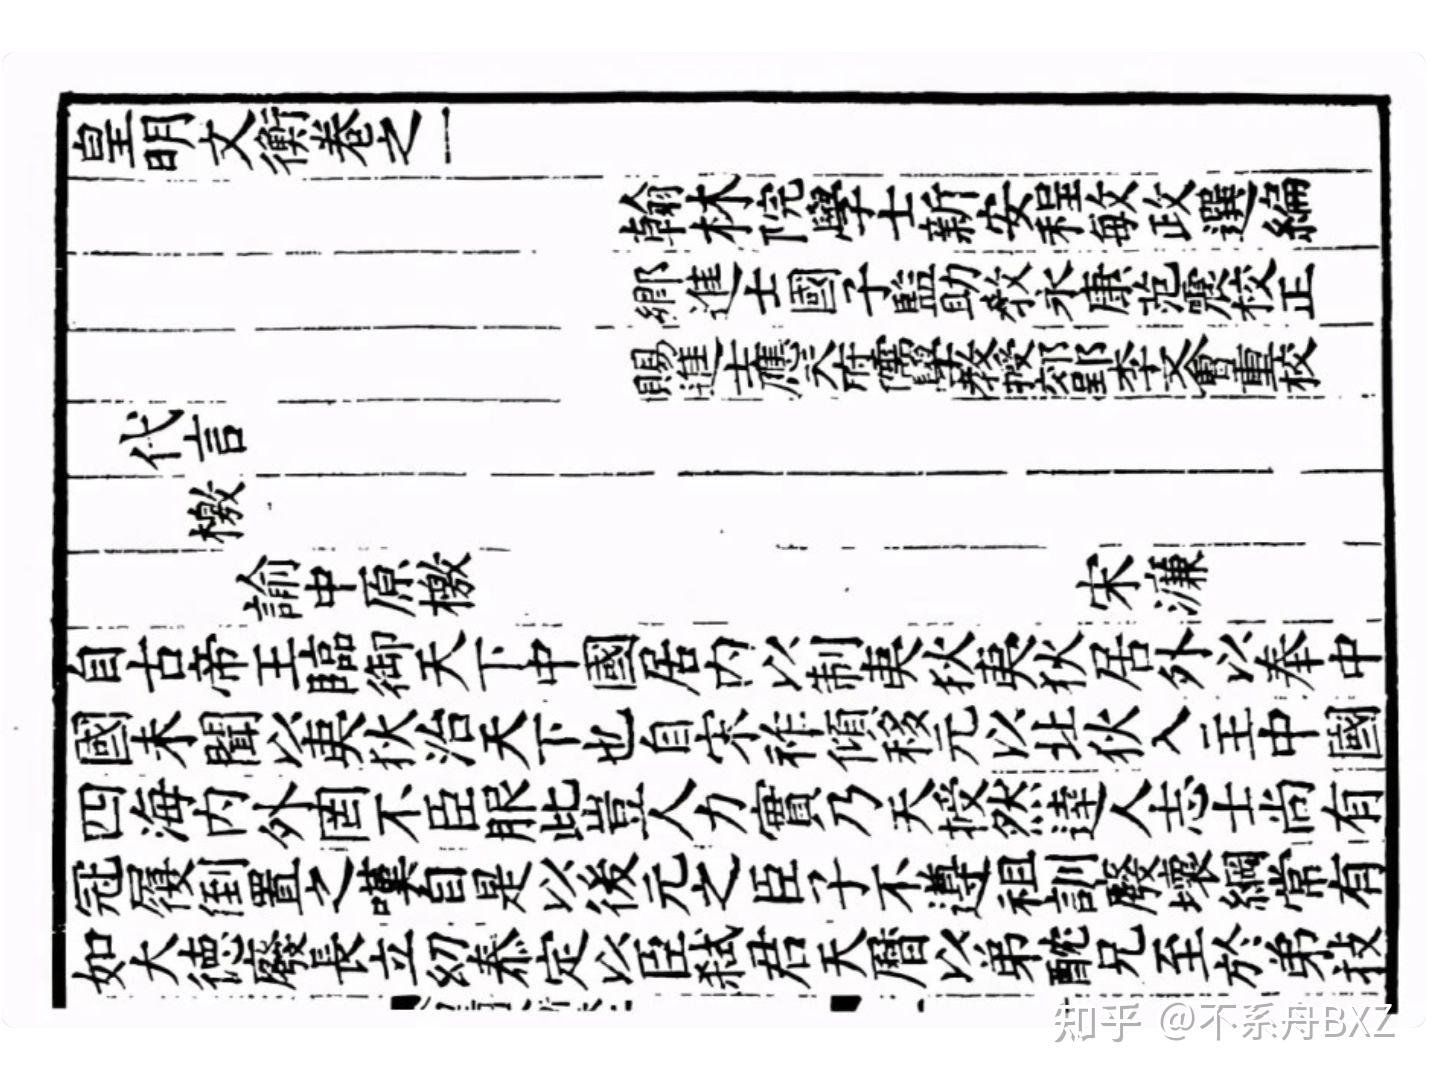 皇明文衡卷之一
翰林院學士新安程敏政選編
鄉進士國子監助教永康范震校正
賜進士應天府儒學教授李文會重校
代言
檄
諭中原檄 宋濂
自古帝王臨御天下中國居內以制夷狄夷狄居外以奉中
國未聞以夷狄治天下也自宋祚傾移元以北狄入主中國
四海內外罔不臣服此豈人力實乃天授然達人志士尚有
冠履倒置之嘆自是以後元之臣子不遵祖訓廢壞綱常有
如大德廢長立幼泰定以臣弒君天曆以弟酖兄至於弟收
知乎 @不系舟BXZ